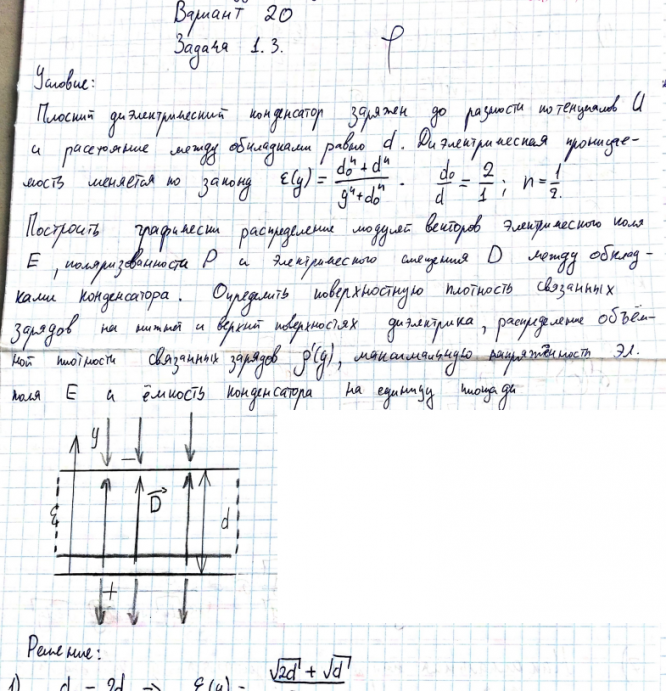 Вариант 20
Задача 1.3.
φ
Условие:
Плоский диэлектрический конденсатор заряжен до разности потенциалов U
и расстояние между обкладками равно d. Диэлектрическая проницае-
мость меняется по закону ε(y) = (d₀ⁿ + dⁿ)/(yⁿ + d₀ⁿ). d₀/d = 2/1; n = 1/2.
Построить графически распределение модулей векторов электрического поля
E, поляризованности P и электрического смещения D между обклад-
ками конденсатора. Определить поверхностную плотность связанных
зарядов на нижней и верхней поверхностях диэлектрика, распределение объём-
ной плотности связанных зарядов ρ'(y), максимальную напряжённость эл.
поля E и ёмкость конденсатора на единицу площади
y
−
ε
D
d
+
Решение:
1) d = 2d => ε(y) = √2d + √d